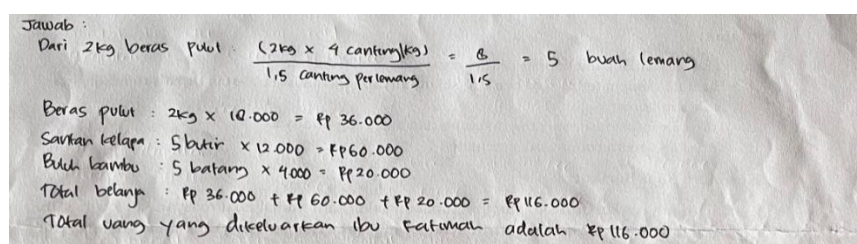 Jawab :
Dari 2kg beras pulut (2kg × 4 canting/kg) / 1,5 canting perlemang = 8 / 1,5 = 5 buah lemang
Beras pulut : 2kg × 18.000 = Rp 36.000
Santan kelapa : 5 butir × 12.000 = Rp60.000
Buluh bambu : 5 batang × 4000 = Rp20.000
Total belanja : Rp 36.000 + Rp 60.000 + Rp 20.000 = Rp116.000
Total uang yang dikeluarkan ibu Fatimah adalah Rp116.000